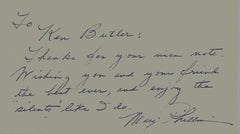 To
Ken Butler:
Thanks for your nice note.
Wishing you and your friend
the best ever, and enjoy the
"silents" like I do.
Mary